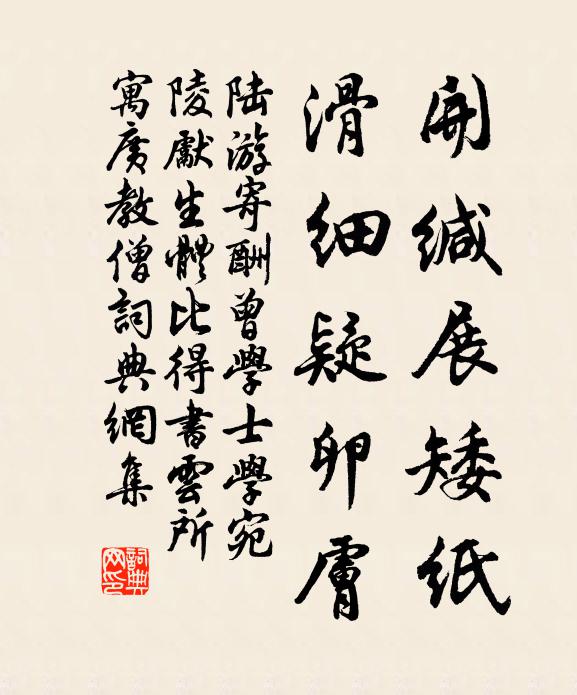 開緘展矮紙
滑細疑卵膚
陸游寄酬曾學士學宛
陵獻生體比得書雲所
寓廣教僧詞典網集
詞典
网印